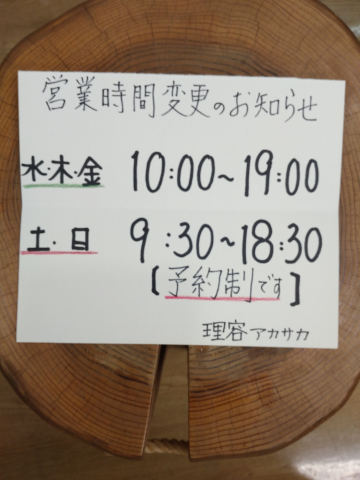 営業時間変更のお知らせ
水・木・金 10:00~19:00
土・日 9:30~18:30
【予約制です】
理容アカサカ